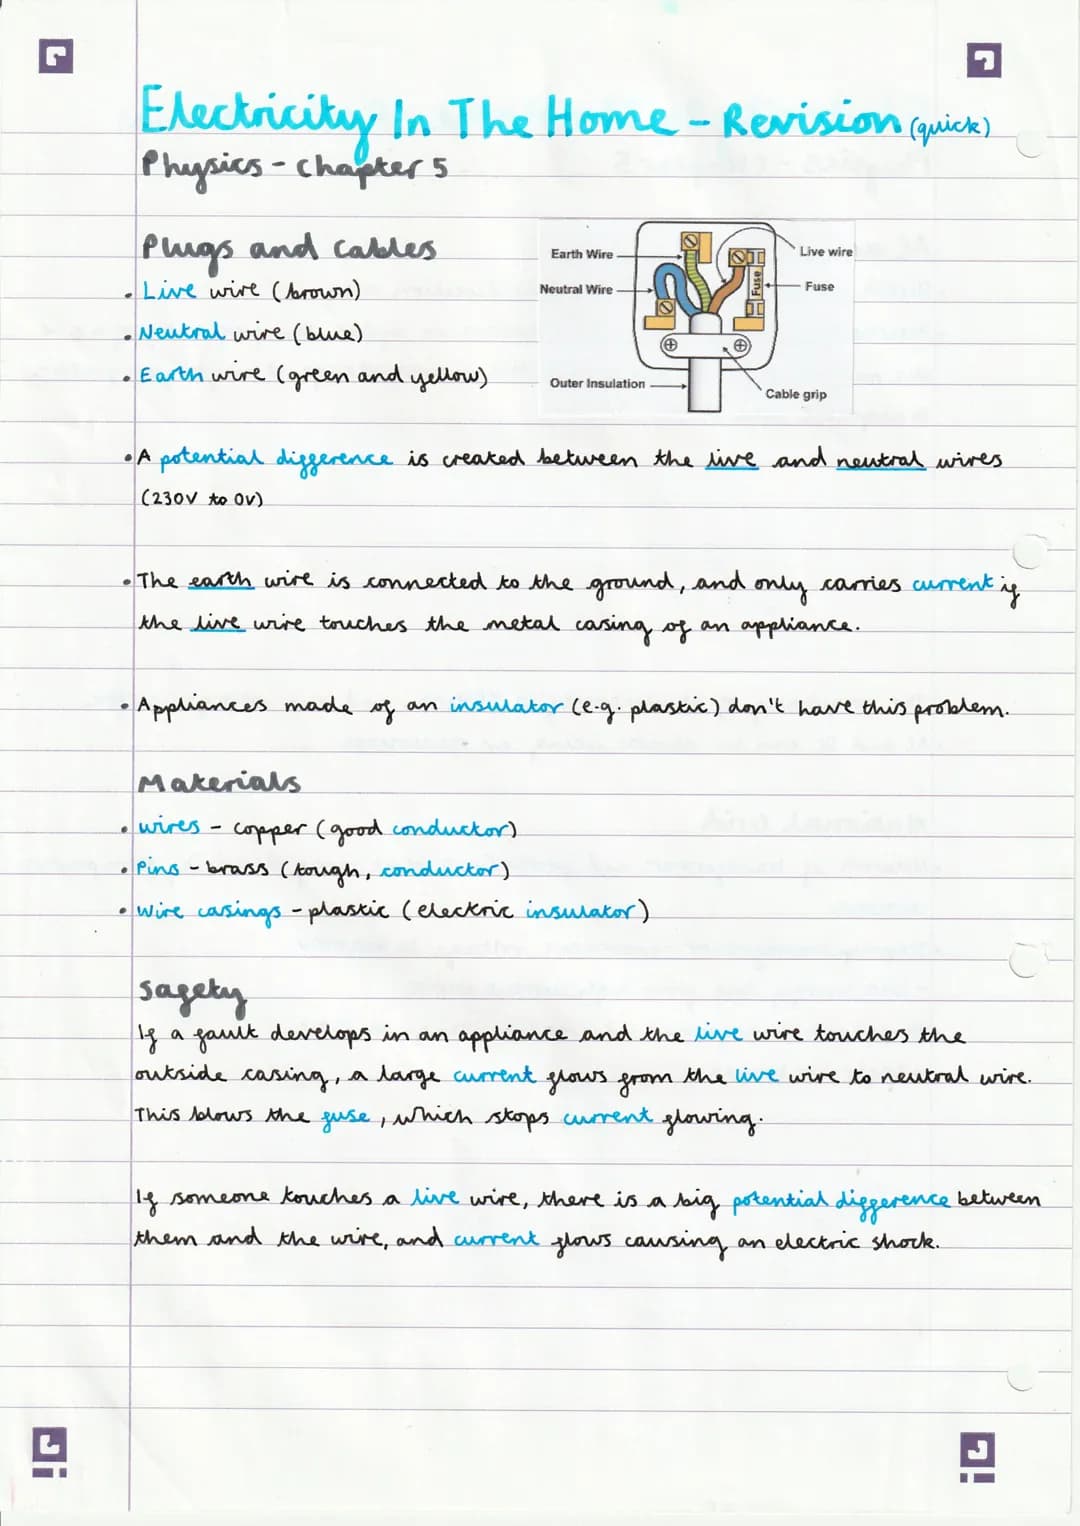 Electricity In The Home - Revision (quick)
Physics - chapter 5
Plugs and cables
• Live wire (brown)
• Neutral wire (blue)
• Earth wire (green and yellow)
Earth Wire
Neutral Wire
Outer Insulation
Live wire
Fuse
Fuse
Cable grip
• A potential difference is created between the live and neutral wires
(230V to 0V)
• The earth wire is connected to the ground, and only carries current if
the live wire touches the metal casing of an appliance.
• Appliances made of an insulator (e.g. plastic) don't have this problem.
Materials
• wires - copper (good conductor)
• Pins - brass (tough, conductor)
• Wire casings - plastic (electric insulator)
Safety
If a fault develops in an appliance and the live wire touches the
outside casing, a large current flows from the live wire to neutral wire.
This blows the fuse, which stops current flowing.
If someone touches a live wire, there is a big potential difference between
them and the wire, and current flows causing an electric shock.